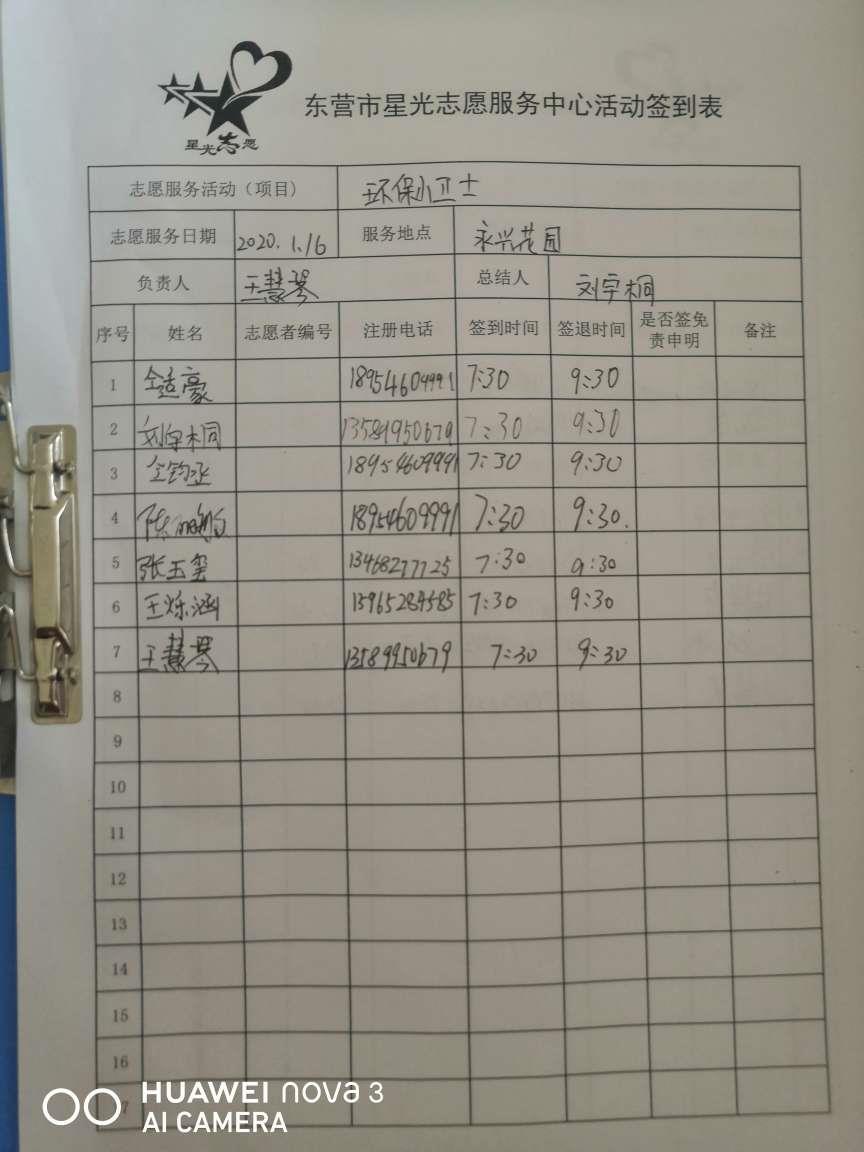 星光志愿
东营市星光志愿服务中心活动签到表
志愿服务活动（项目） 环保小卫士
志愿服务日期 2020.1.16 服务地点 永兴花园
负责人 王慧琴 总结人 刘宇桐
序号 姓名 志愿者编号 注册电话 签到时间 签退时间 是否签免责申明 备注
1 豪 18954604991 7:30 9:30
2 刘宇桐 13589950679 7:30 9:30
3 18954609991 7:30 9:30
4 18954609991 7:30 9:30.
5 张玉玺 13468277725 7:30 9:30
6 王烁涵 7:30 9:30
7 王慧琴 13589950679 7:30 9:30
8
9
10
11
12
13
14
15
16
7
HUAWEI nova 3
AI CAMERA